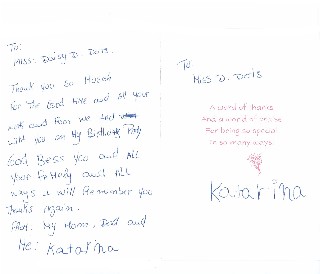 To:
Miss. Daisy D. Davis.
Thank you so Much
For the Good time and all your
and Fun we had
with you on My Birthday Party
God Bless you and All
your Family and All
ways I will Remember you
Thanks Again.
From: My Mom, Dad and
Me: Katarina
To
Miss D. Davis
A word of thanks
And a word of praise
For being so good
In so many ways
Katarina